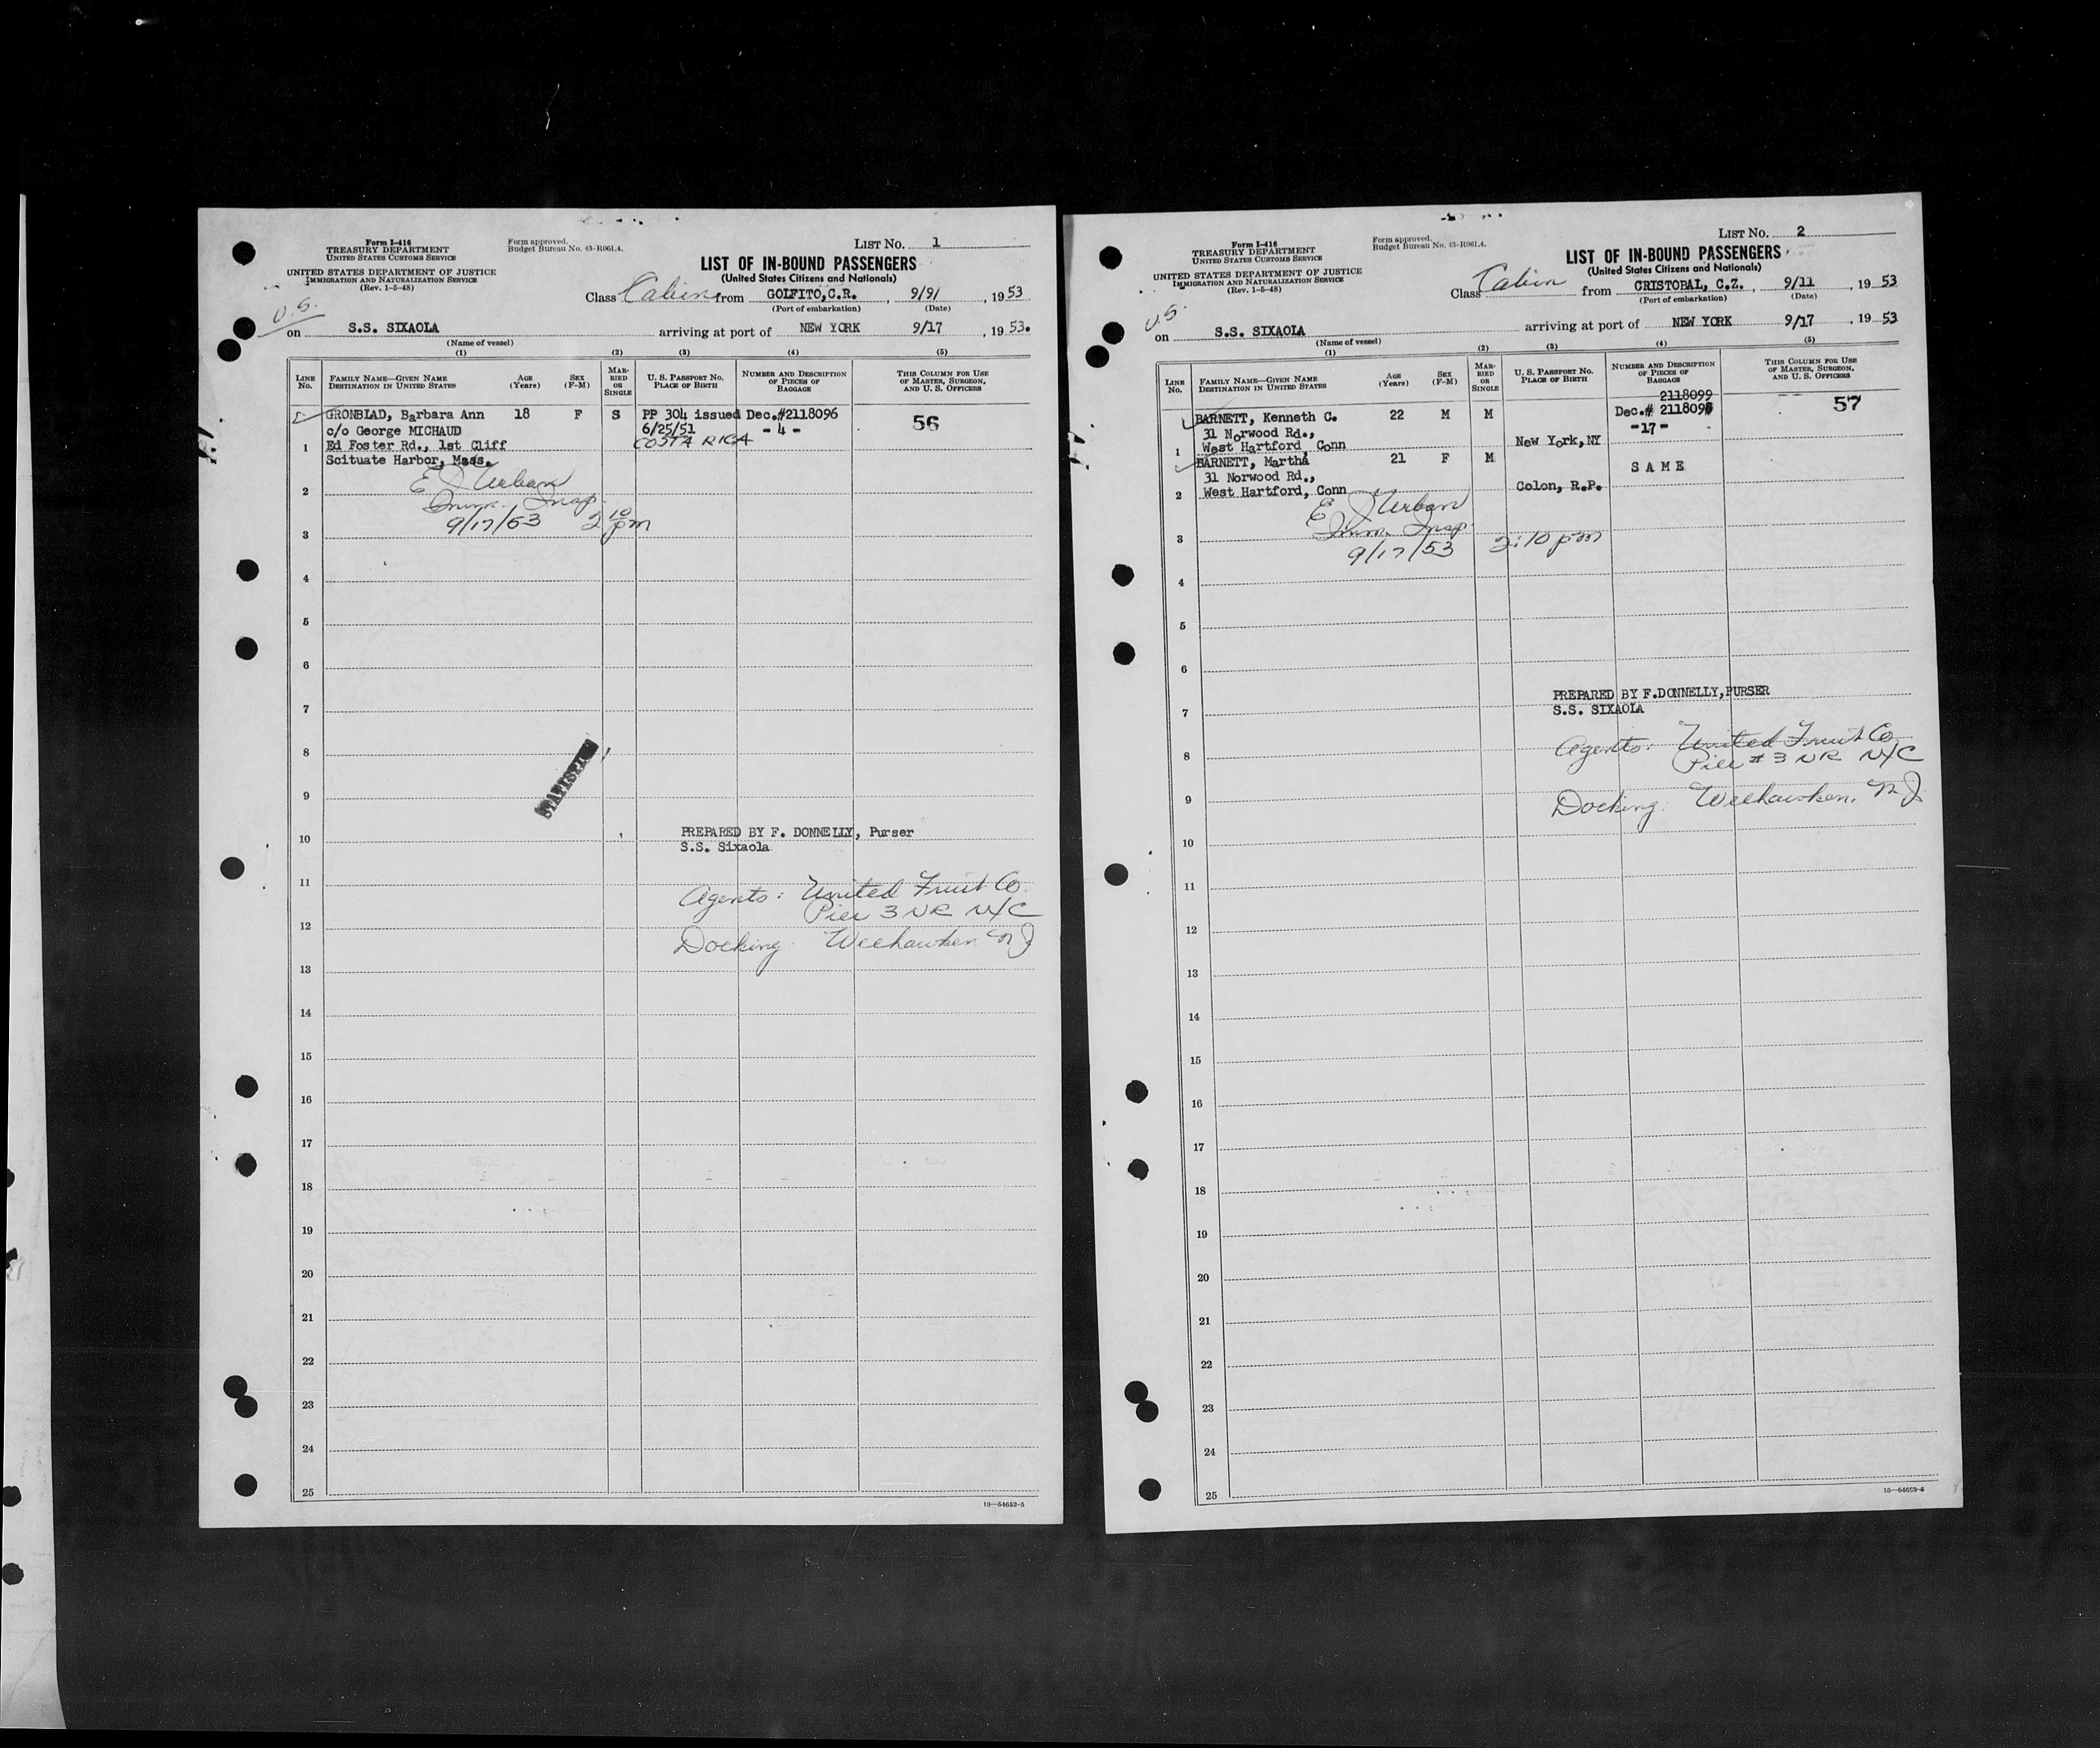 Form I-416
TREASURY DEPARTMENT
UNITED STATES CUSTOMS SERVICE
UNITED STATES DEPARTMENT OF JUSTICE
IMMIGRATION AND NATURALIZATION SERVICE
(Rev. 1-5-48)
Form approved.
Budget Bureau No. 43-R061.4.
LIST NO. 1
LIST OF IN-BOUND PASSENGERS
(United States Citizens and Nationals)
Class Cabin from GOLFITO, C.R. , 9/9/ , 1953
(Port of embarkation) (Date)
U.S.
on S.S. SIXAOLA arriving at port of NEW YORK 9/17 , 1953.
(Name of vessel)
(1) (2) (3) (4) (5)
LINE No. FAMILY NAME—GIVEN NAME DESTINATION IN UNITED STATES AGE (Years) SEX (F-M) MARRIED OR SINGLE U. S. PASSPORT NO. PLACE OF BIRTH NUMBER AND DESCRIPTION OF PIECES OF BAGGAGE THIS COLUMN FOR USE OF MASTER, SURGEON, AND U. S. OFFICERS
GRONBLAD, Barbara Ann 18 F S PP 304 issued Dec.#2118096 56
c/o George MICHAUD 6/25/51 - 4 -
1 Ed Foster Rd., 1st Cliff COSTA RICA
Scituate Harbor, Mass.
E J Urban
2 Imm. Insp.
9/17/53 2 10 pm
3
4
5
6
7
8
9
10 PREPARED BY F. DONNELLY, Purser
S.S. Sixaola
11 Agents: United Fruit Co.
12 Pier 3 NR NYC
Docking: Weehawken NJ
13
14
15
16
17
18
19
20
21
22
23
24
25
16—54652-5
Form I-416
TREASURY DEPARTMENT
UNITED STATES CUSTOMS SERVICE
UNITED STATES DEPARTMENT OF JUSTICE
IMMIGRATION AND NATURALIZATION SERVICE
(Rev. 1-5-48)
Form approved.
Budget Bureau No. 43-R061.4.
LIST NO. 2
LIST OF IN-BOUND PASSENGERS
(United States Citizens and Nationals)
Class Cabin from CRISTOBAL, C.Z. , 9/11 , 1953
(Port of embarkation) (Date)
U.S.
on S.S. SIXAOLA arriving at port of NEW YORK 9/17 , 1953
(Name of vessel)
(1) (2) (3) (4) (5)
LINE No. FAMILY NAME—GIVEN NAME DESTINATION IN UNITED STATES AGE (Years) SEX (F-M) MARRIED OR SINGLE U. S. PASSPORT NO. PLACE OF BIRTH NUMBER AND DESCRIPTION OF PIECES OF BAGGAGE THIS COLUMN FOR USE OF MASTER, SURGEON, AND U. S. OFFICERS
2118099
BARNETT, Kenneth C. 22 M M Dec.# 2118098 57
31 Norwood Rd., -17-
1 West Hartford, Conn New York, NY
BARNETT, Martha 21 F M S A M E
31 Norwood Rd.,
2 West Hartford, Conn Colon, R.P.
E J Urban
Imm. Insp.
3 9/17/53 2:10 pm
4
5
6
PREPARED BY F.DONNELLY, PURSER
7 S.S. SIXAOLA
Agents: United Fruit Co.
8 Pier #3 NR NYC
9 Docking: Weehawken, NJ
10
11
12
13
14
15
16
17
18
19
20
21
22
23
24
25
16—54652-5